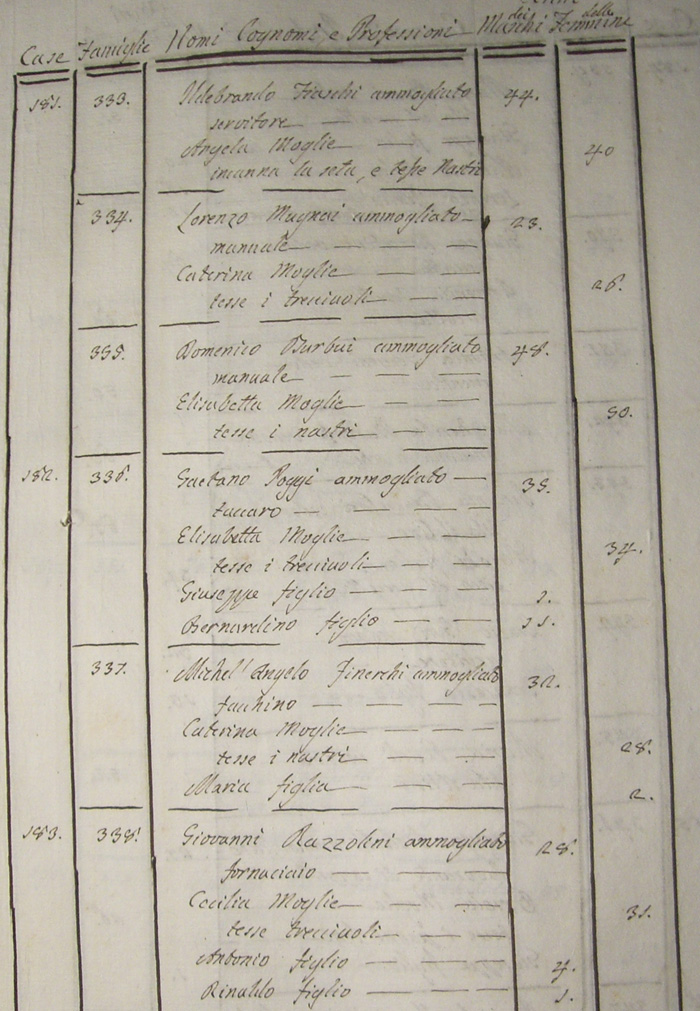 Anni
Case Famiglie Nomi Cognomi, e Professioni dei Maschi delle Femmine
181. 333. Ildebrando Fiaschi ammogliato 44.
servitore
Angela Moglie 40
incanna la seta, e tesse Nastri
334. Lorenzo Mugnai ammogliato 23.
manuale
Caterina Moglie 26.
tesse i trecciuoli
335. Domenico Burbui ammogliato 48.
manuale
Elisabetta Moglie 50.
tesse i nastri
182. 336. Gaetano Poggi ammogliato 35.
Elisabetta Moglie 34.
tesse i trecciuoli
Giuseppe figlio
Bernardino figlio 11.
337. Michel' Angelo ammogliato 32.
facchino
Caterina Moglie
tesse i nastri 28.
Maria figlia 2.
183. 338. Giovanni Razzolini ammogliato 28.
fornaciaio
Cecilia Moglie 31.
tesse trecciuoli
Antonio figlio 4.
Rinaldo figlio 1.